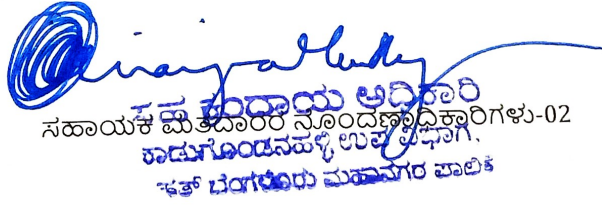 ಸಹ ಕಂದಾಯ ಅಧಿಕಾರಿ
ಸಹಾಯಕ ಮತದಾರರ ನೊಂದಣಾಧಿಕಾರಿಗಳು-02
ಕಾಡುಗೊಂಡನಹಳ್ಳಿ ಉಪ ವಿಭಾಗ,
ಬೆಂಗಳೂರು ಮಹಾನಗರ ಪಾಲಿಕೆ